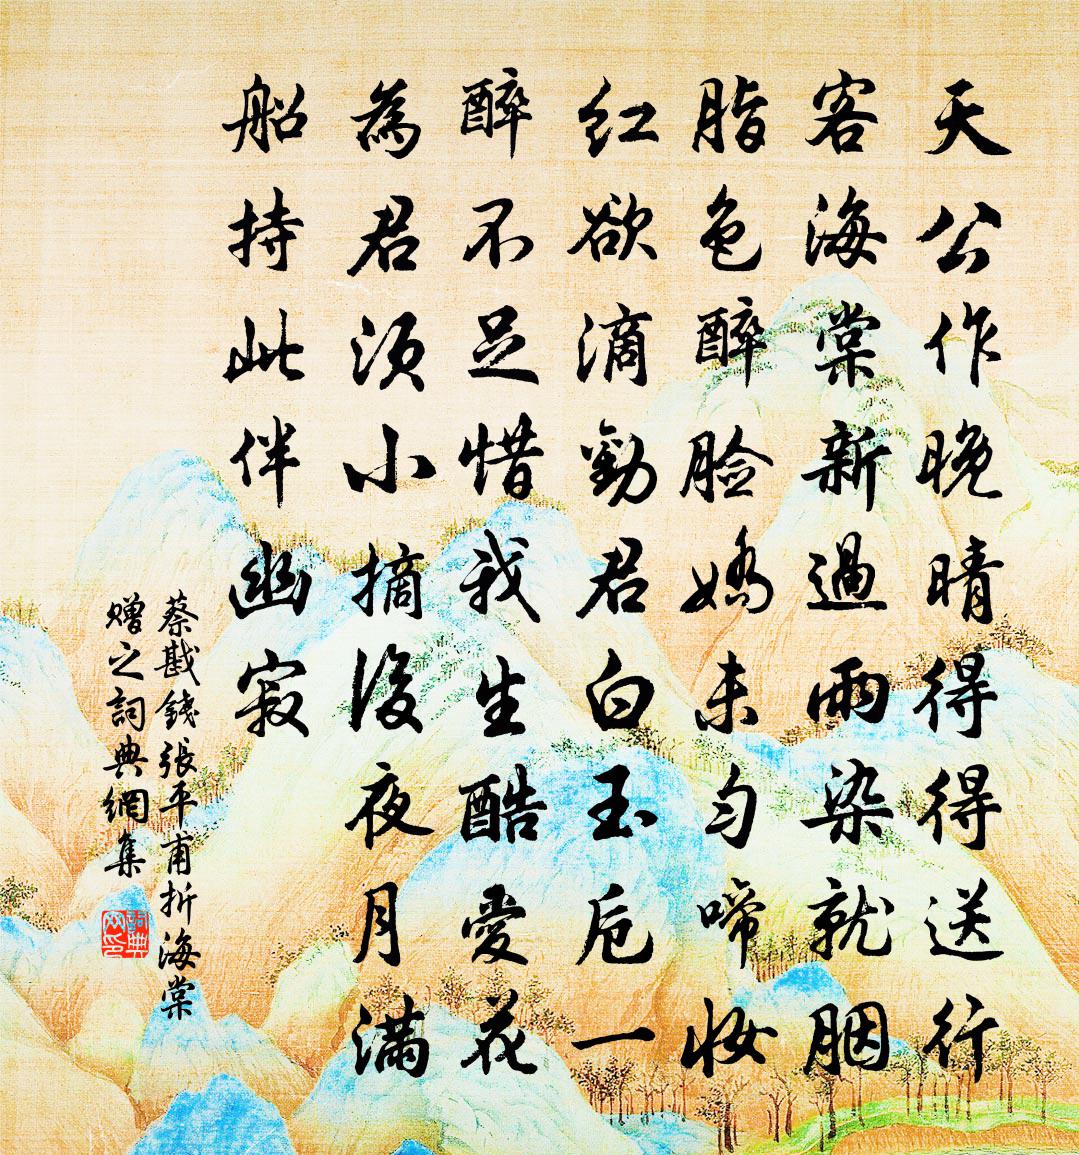 天公作晚晴得得送行
客海棠新過雨染就胭
脂色醉臉嬌未匀啼妝
红欲滴勸君白玉卮一
醉不足惜我生酷愛花
為君須小摘後夜月滿
船持此伴幽寂
蔡戡錢張平甫折海棠
贈之詞典網集